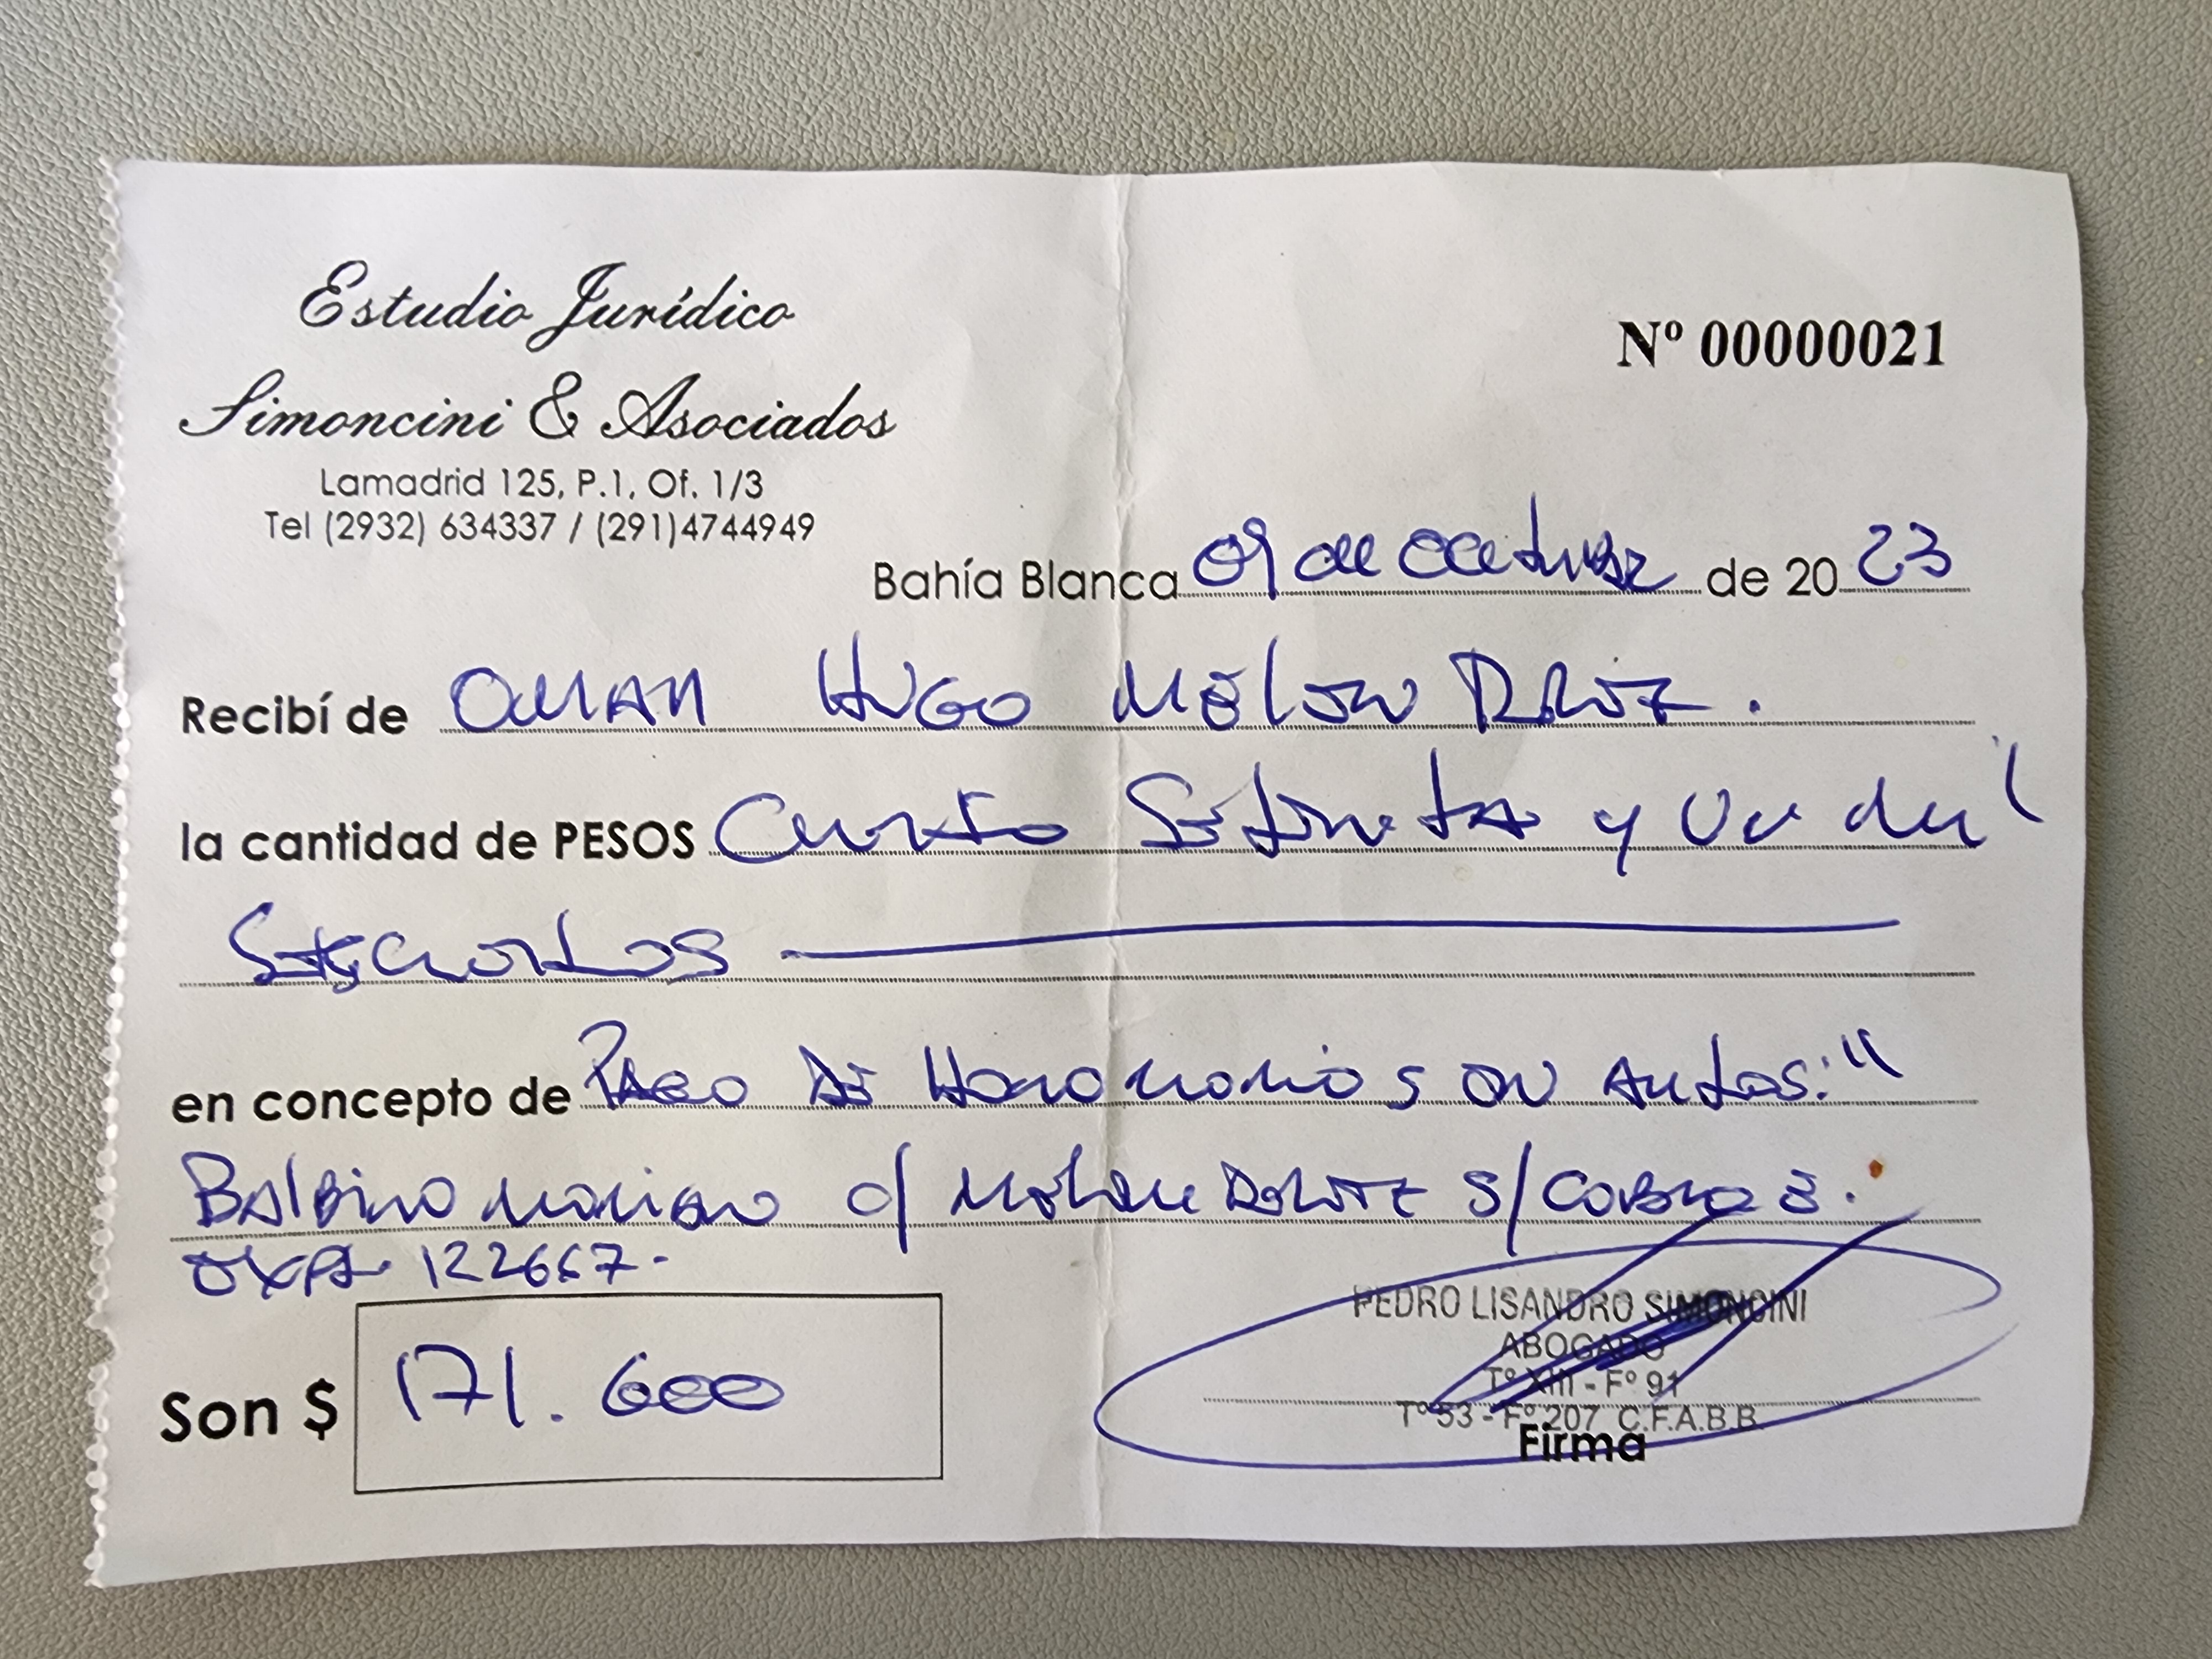 Estudio Jurídico
Simoncini & Asociados
Lamadrid 125, P.1, Of. 1/3
Tel (2932) 634337 / (291)4744949
Nº 00000021
Bahía Blanca 09 de octubre de 20 23
Recibí de Hugo
la cantidad de PESOS Ciento Setenta y Un mil
Seiscientos
en concepto de Pago de Honorarios en autos: "
Balbino Mariano c/ s/ Cobro
Expte. 122667.-
Son $ 171.600
PEDRO LISANDRO SIMONCINI
ABOGADO
Tº XIII - Fº 91
Tº 53 - Fº 207 C.F.A.B.B.
Firma